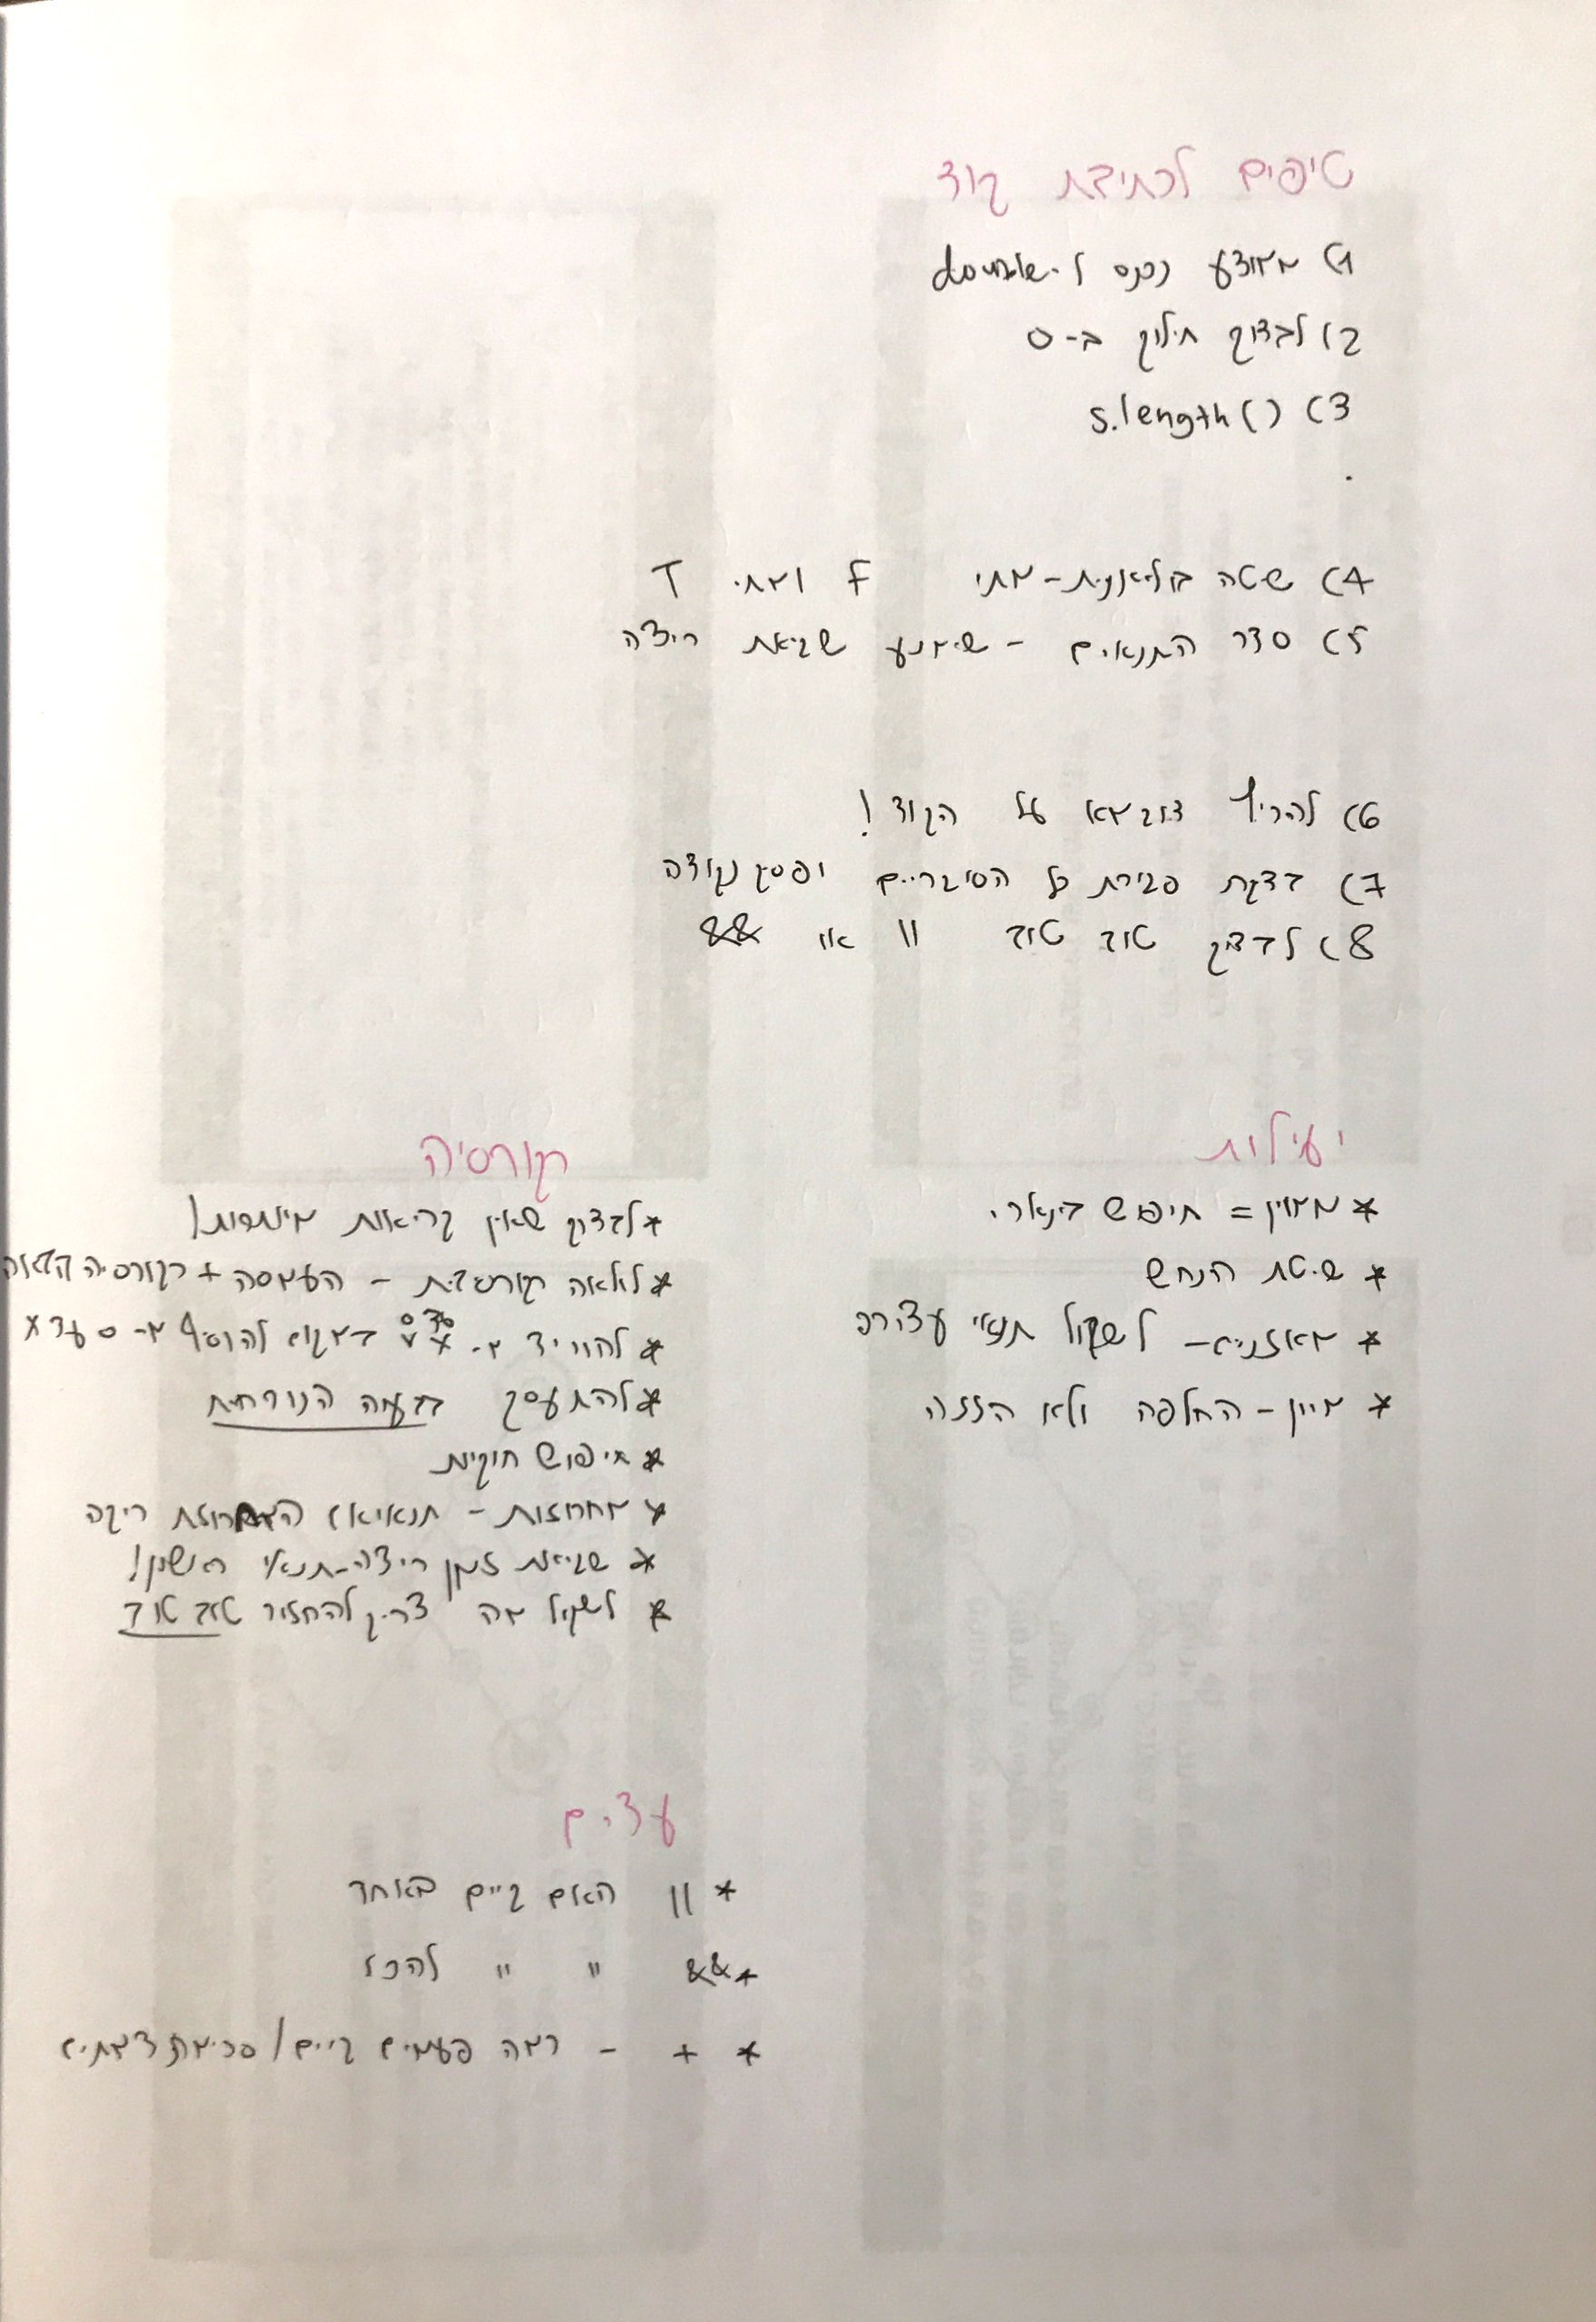 טיפים לכתיבת קוד
1) ממוצע נכנס ל-double
2) לבדוק חילוק ב-0
3) s.length()
4) שיטה בוליאנית - מתי F ומתי T
5) סדר התנאים - שימנע שגיאת ריצה
6) להריץ דוגמא על הקוד!
7) בדקת סגירת כל הסוגריים ופסק נקודה
8) לבדוק טוב טוב || או &&
יעילות
* ממוין = חיפוש בינארי
* שיטת הנחש
* מאזניים - לשקול תנאי עצירה
* מיון - החלפה ולא הזזה
רקורסיה
* לבדוק שאין קריאות מיותרות!
* לולאה רקורסיבית - העמסה + רקורסיה
* להוריד מ- x עד 0 במקום להוסיף מ- 0 עד x
* להתעסק בבעיה הנוכחית
* חיפוש חוקיות
* מחרוזות - תנאי המחרוזת ריקה
* שגיאת זמן ריצה - תנאי ראשון!
* לשקול מה צריך להחזיר טוב טוב
עצים
* || האם קיים באחד
* && " " להכל
* + - כמה פעמים קיים /